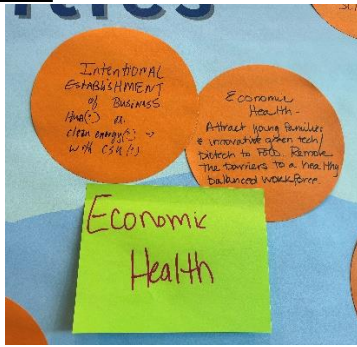 Intentional
Establishment
of Business
clean energy(?)
with CSU(?)
Economic
Health -
Attract young families
& innovative green tech/
biotech to FoCo. Remove
the barriers to a healthy
balanced workforce.
Economic
Health